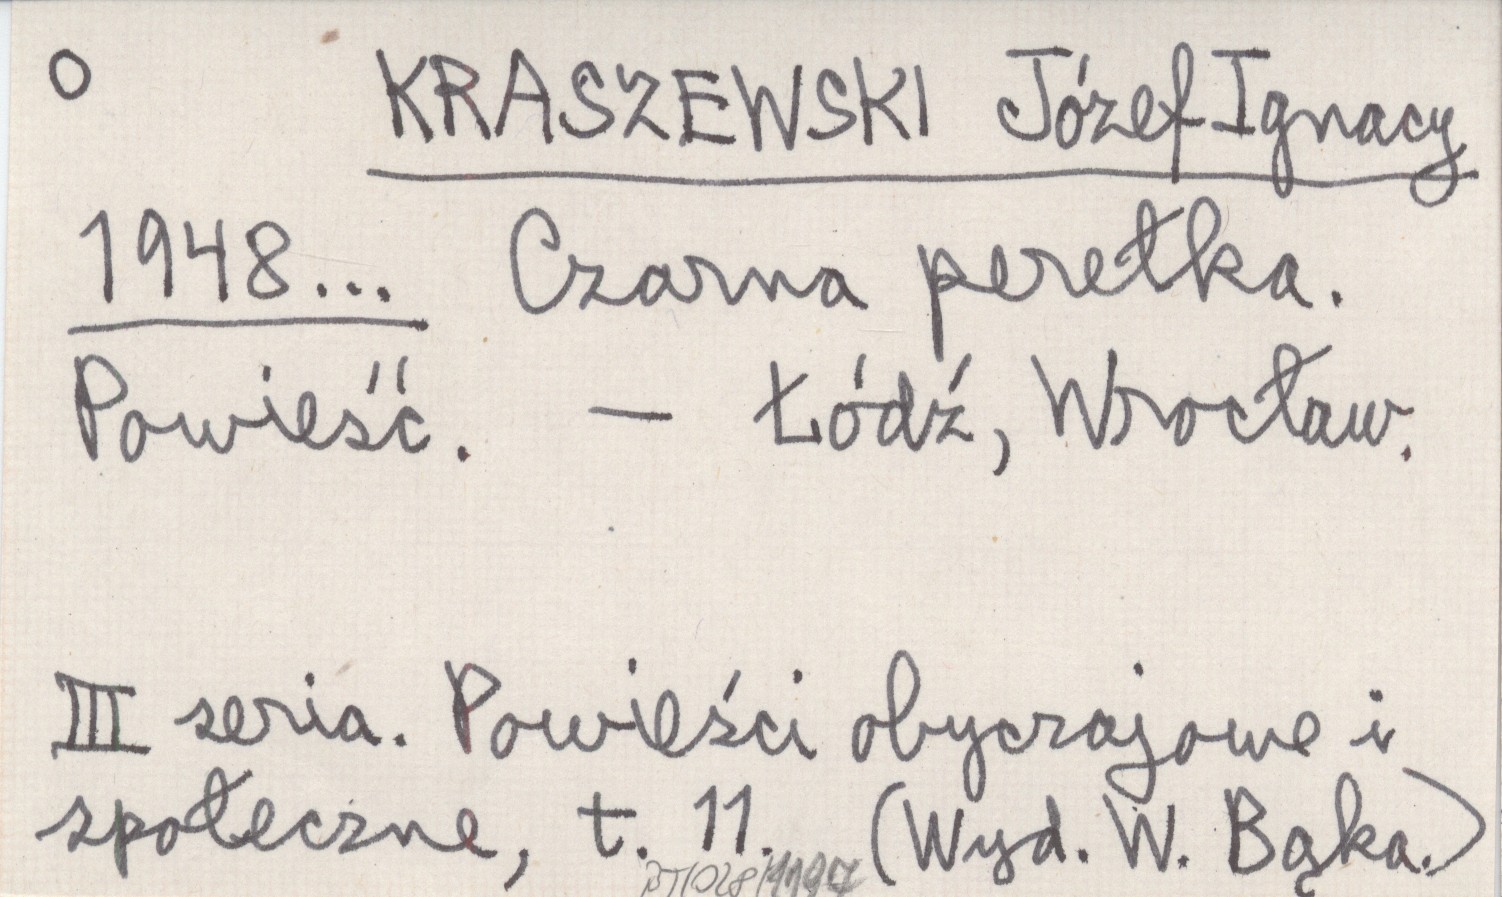 O KRASZEWSKI Józef Ignacy
1948... Czarna perełka.
Powieść. — Łódź, Wrocław.
III seria. Powieści obyczajowe i
społeczne, t. 11. (Wyd. W. Bąka.)